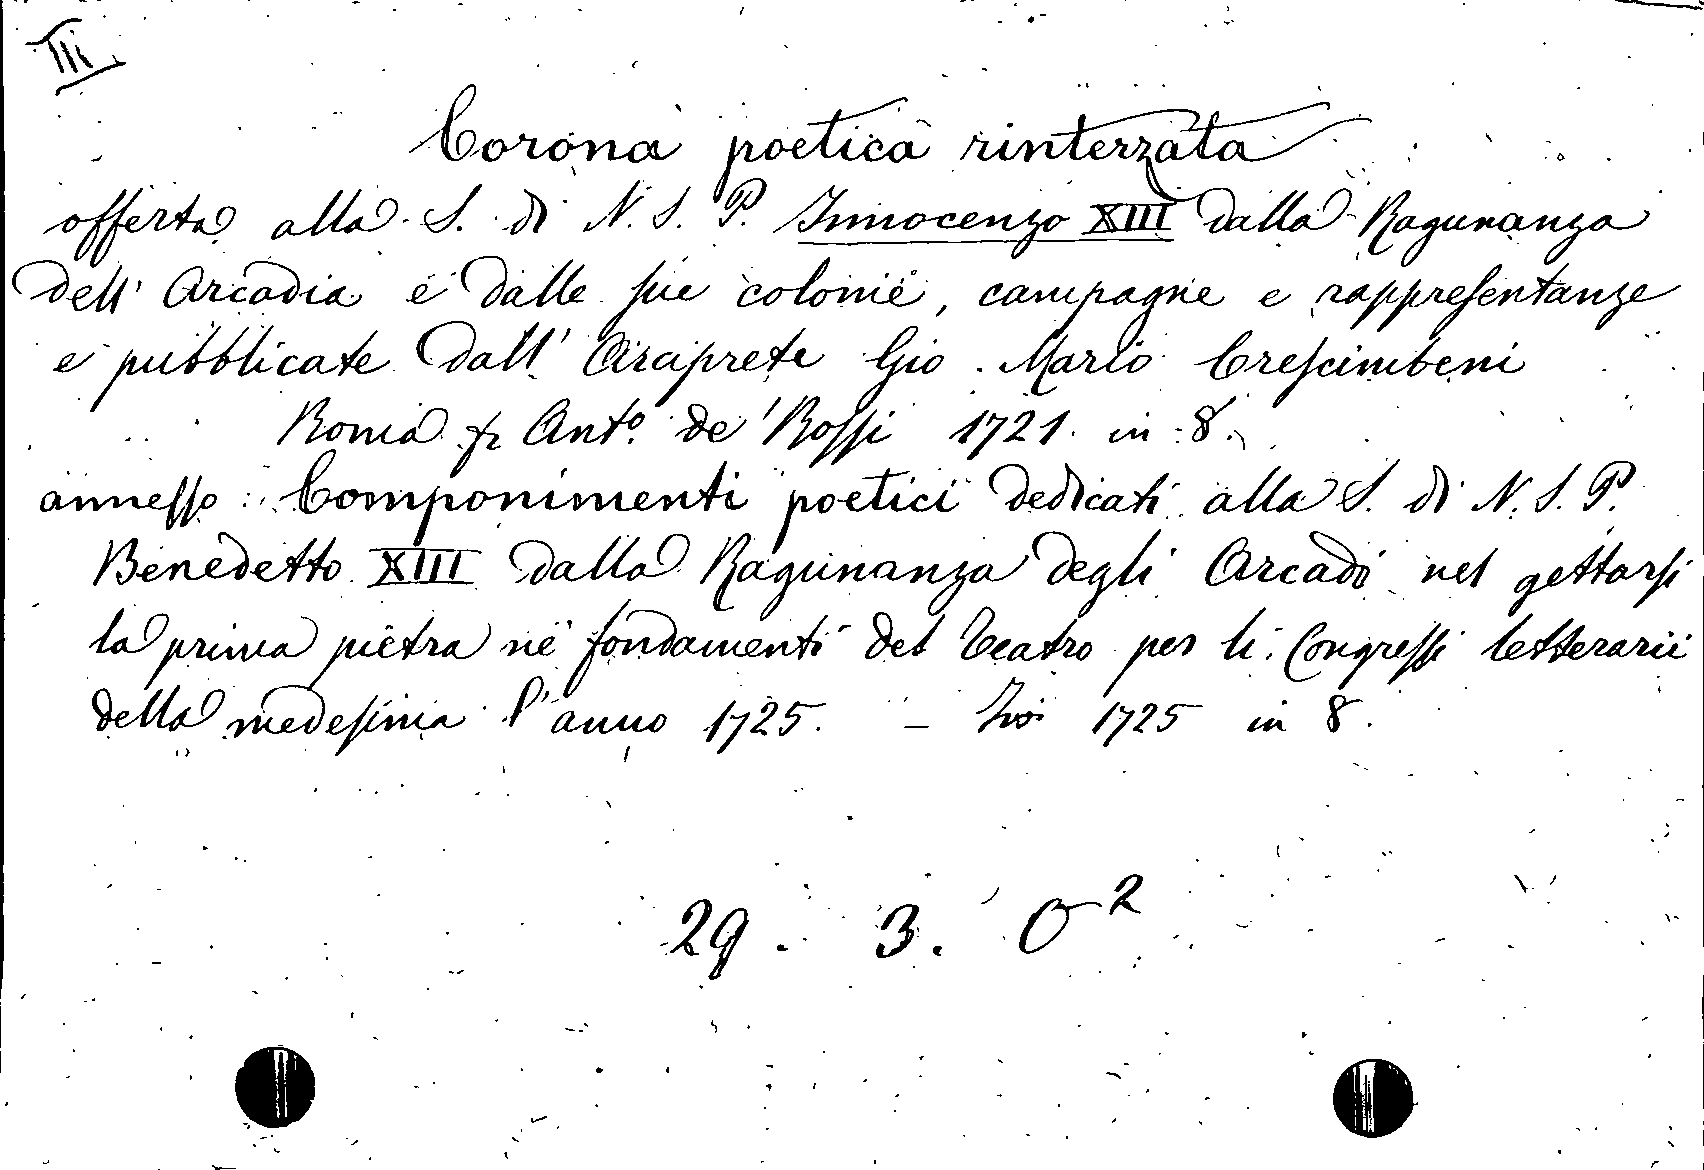 III
Corona poetica rinterzata
offerta alla S. di N. S. P. Innocenzo XIII dalla Ragunanza
dell' Arcadia e dalle sue colonie, campagne e rappresentanze
e pubblicate dall' Arciprete Gio. Mario Crescimbeni
Roma Ant.o de' Rossi 1721. in 8.
annesso: Componimenti poetici dedicati alla S. di N. S. P.
Benedetto XIII dalla Ragunanza degli Arcadi nel gettarsi
la prima pietra ne' fondamenti del Teatro per li Congressi letterarii
della medesima l'anno 1725. – Ivi 1725 in 8.
29. 3. O 2